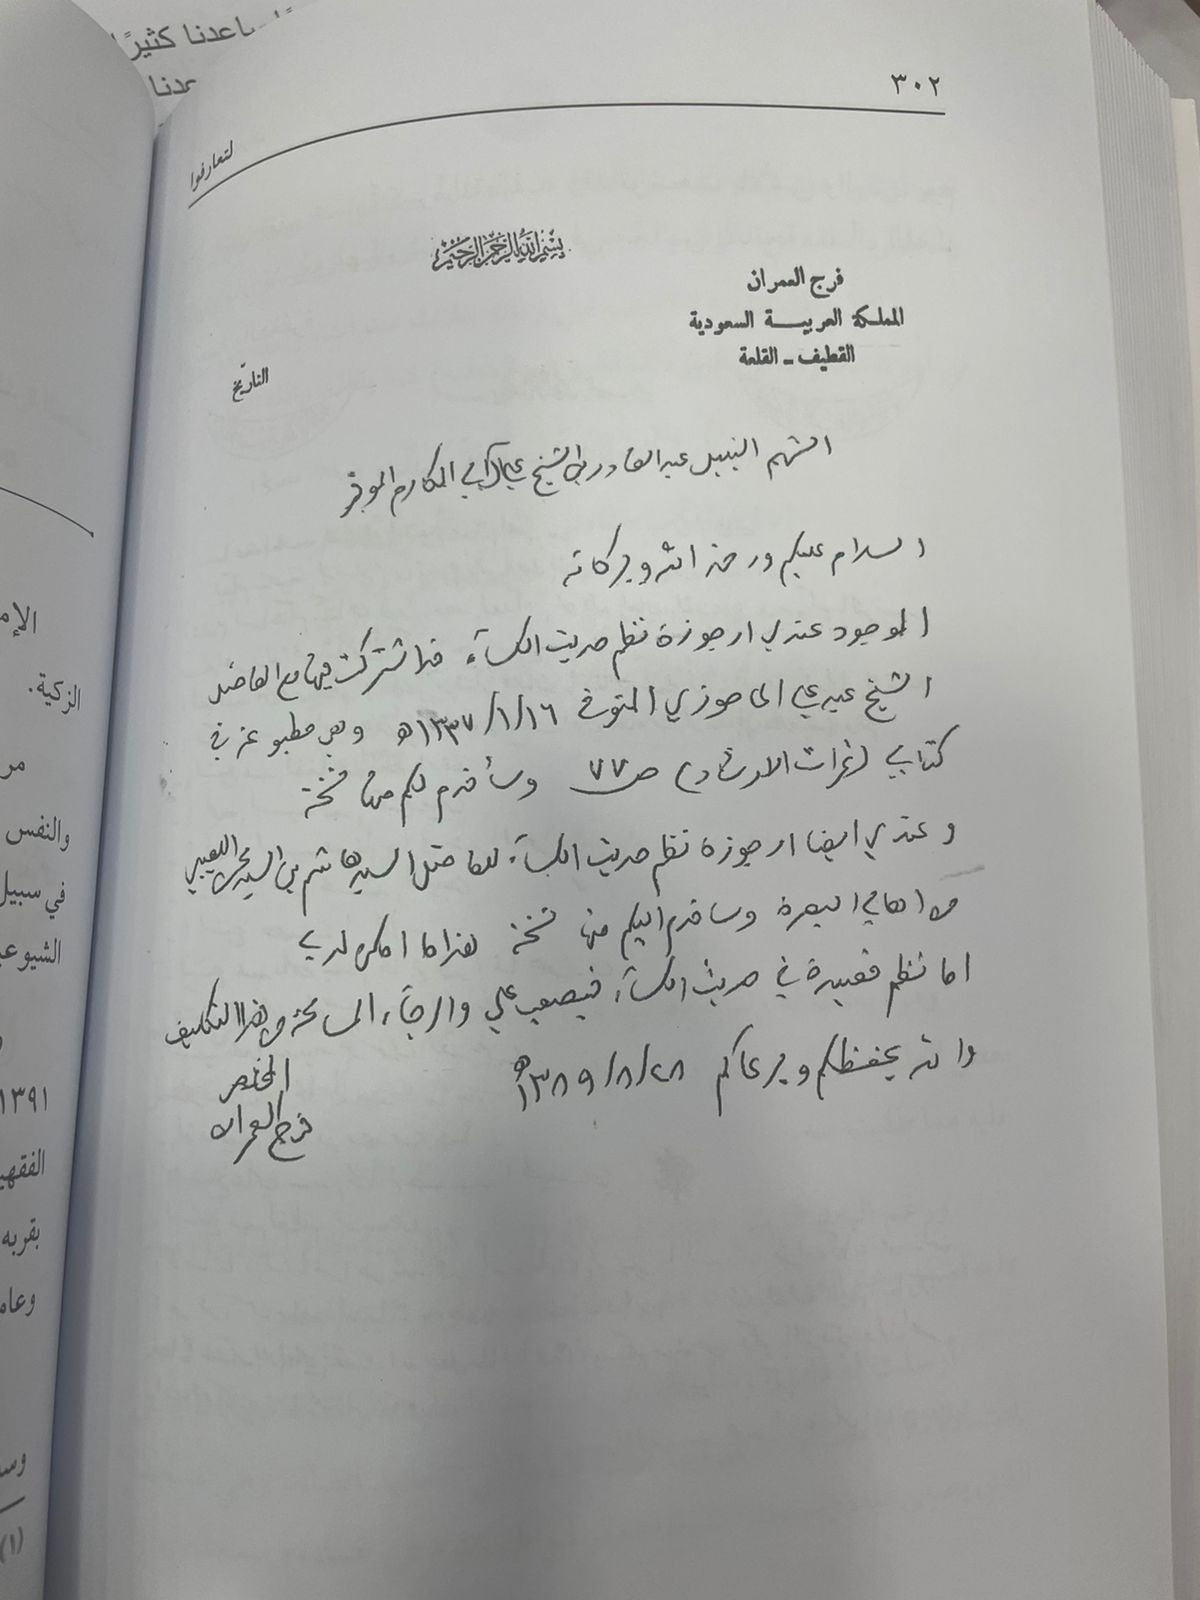 ساعدنا كثيرًا
عدنا
٣٠٢
لتعارفوا
بسم الله الرحمن الرحيم
فرج العمران
المملكة العربية السعودية
القطيف - القلعة
التاريخ
الشهم النبيل عبد القادر بن الشيخ علي آل أبي المكارم الموقر
السلام عليكم ورحمة الله وبركاته
الموجود عندي ارجوزة نظم حديث الكسآء قد اشتركت فيها مع الفاضل
الشيخ عبد علي الماحوزي المتوفى ١٣٣٧/١/١٦هـ وهي مطبوعة في
كتابي (ثمرات الارشاد) ص٧٧ وسأقدم لكم منها نسخة
وعندي ايضا ارجوزة نظم حديث الكسآء للفاضل السيد هاشم بن السيد محسن اللعيبي
من اهالي البصرة وسأقدم اليكم منها نسخة هذا ما امكن لدي
اما نظم قصيدة في حديث الكسآء فيصعب علي والرجآء المسامحة من هذا التكليف
والله يحفظكم ويرعاكم ١٣٨٩/٨/٢٨هـ
المخلص
فرج العمران
الإم
الزكية.
مر
والنفس
في سبيل
الشيوعي
١٣٩١
الفقهي
بقربه
وعام
وسـ
(١)